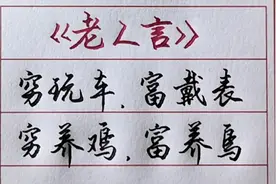 《老人言》
穷玩车，富戴表
穷养鸡，富养鸟